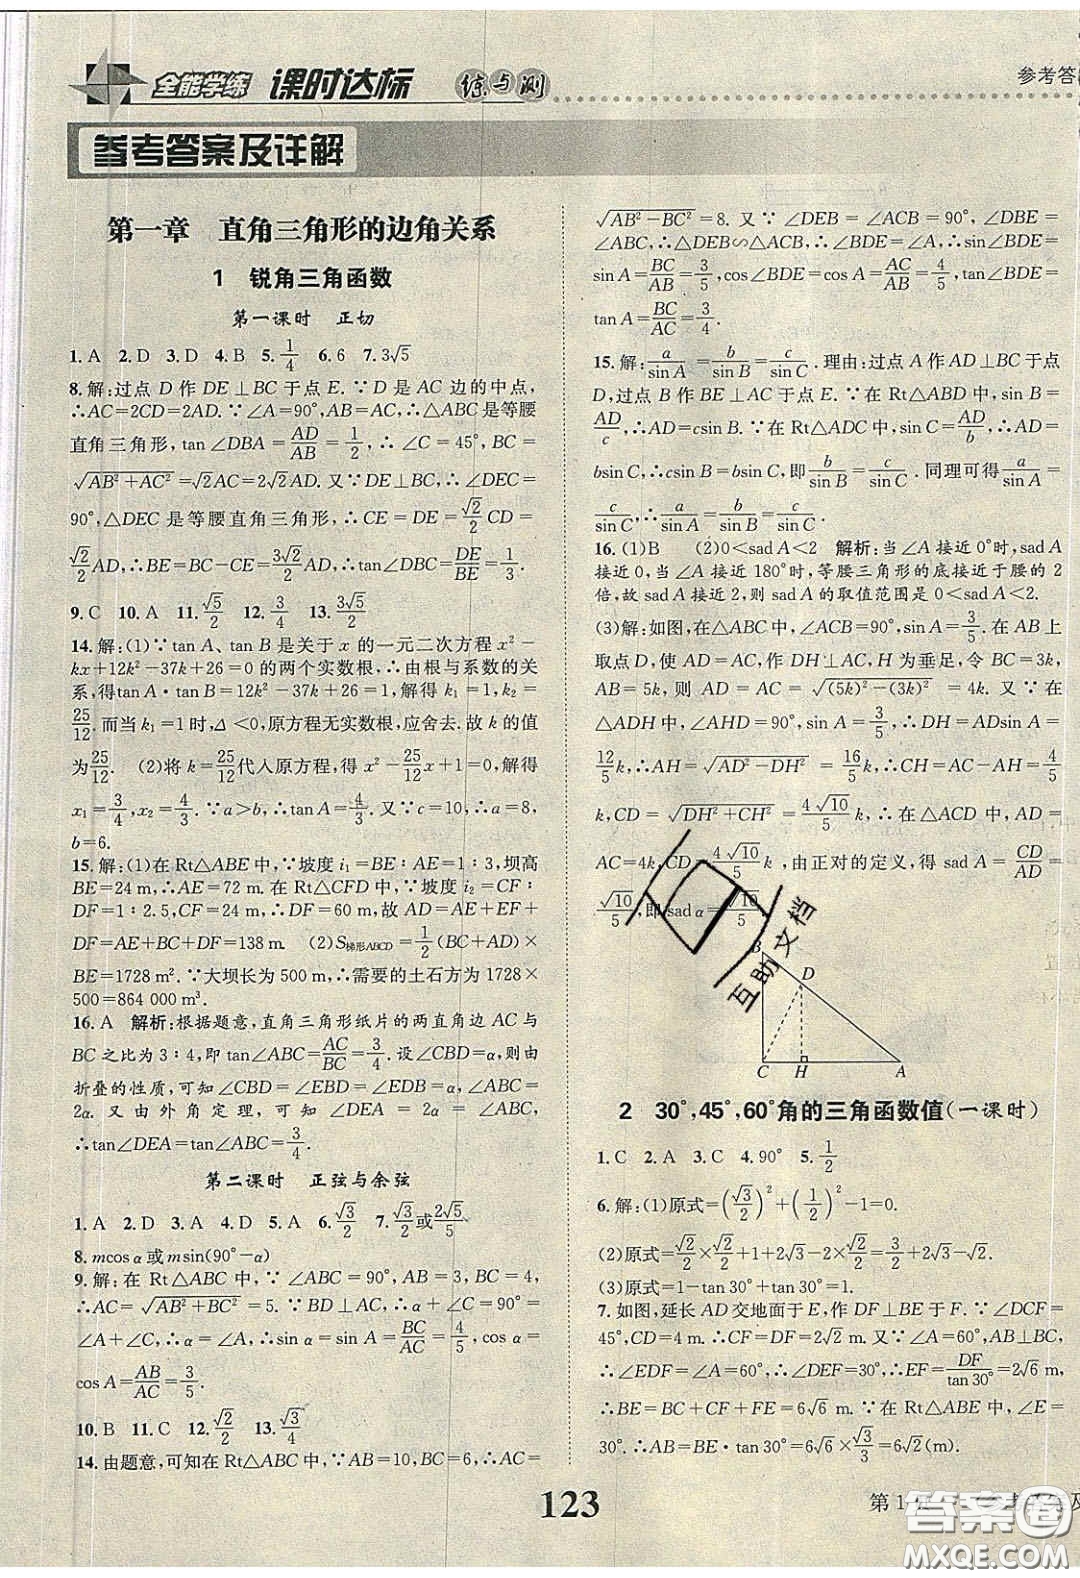 全能学练 课时达标 练与测
参考答
参考答案及详解
第一章 直角三角形的边角关系
1 锐角三角函数
第一课时 正切
1. A 2. D 3. D 4. B 5. 1/4 6. 6 7. 3√5
8. 解:过点 D 作 DE⊥BC 于点 E. ∵D 是 AC 边的中点,
∴AC=2CD=2AD. ∵∠A=90°,AB=AC,∴△ABC 是等腰
直角三角形, tan∠DBA=AD/AB=1/2, ∴∠C=45°, BC=
√(AB²+AC²)=√2AC=2√2AD. 又∵DE⊥BC, ∴∠DEC=
90°,△DEC 是等腰直角三角形,∴CE=DE=√2/2 CD=
√2/2 AD,∴BE=BC−CE=3√2/2 AD,∴tan∠DBC=DE/BE=1/3.
9. C 10. A 11. √5/2 12. 3/4 13. 3√5/2
14. 解:(1)∵tan A、tan B 是关于 x 的一元二次方程 x²−
kx+12k²−37k+26=0 的两个实数根,∴由根与系数的关
系,得tan A·tan B=12k²−37k+26=1. 解得 k₁=1, k₂=
25/12. 而当 k₁=1时,Δ<0,原方程无实数根,应舍去. 故 k 的值
为25/12. (2)将 k=25/12代入原方程,得 x²−25/12x+1=0. 解得
x₁=3/4,x₂=4/3. ∵a>b,∴tan A=4/3. 又∵c=10,∴a=8,
b=6.
15. 解:(1)在 Rt△ABE 中,∵坡度 i₁=BE∶AE=1∶3,坝高
BE=24 m,∴AE=72 m. 在 Rt△CFD 中,∵坡度 i₂=CF∶
DF=1∶2.5,CF=BE,∴DF=60 m,故 AD=AE+EF+
DF=AE+BC+DF=138 m. (2)S梯形ABCD=1/2(BC+AD)×
BE=1728 m². ∵大坝长为 500 m,∴需要的土石方为 1728×
500=864 000 m³.
16. A 解析:根据题意,直角三角形纸片的两直角边 AC 与
BC 之比为 3∶4,即 tan∠ABC=AC/BC=3/4. 设∠CBD=α,则由
折叠的性质,可知∠CBD=∠EBD=∠EDB=α,∠ABC=
2α. 又由外角定理,可知∠DEA=2α=∠ABC,
∴tan∠DEA=tan∠ABC=3/4.
第二课时 正弦与余弦
1. A 2. D 3. D 4. A 5. A 6. √3/2 7. √3/2或2√5/5
8. mcos α或 msin(90°−α)
9. 解:在 Rt△ABC 中,∵∠ABC=90°, AB=3, BC=4,
∴AC=√(AB²+BC²)=5. ∵BD⊥AC,∴α+∠C=90°=
∠A+∠C,∴α=∠A,∴sin α=sin A=BC/AC=4/5, cos α=
cos A=AB/AC=3/5.
10. B 11. C 12. √2/2 13. √3/4
14. 由题意,可知在 Rt△ABC 中,∵AB=10, BC=6,∴AC=
√(AB²−BC²)=8. 又∵∠DEB=∠ACB=90°, ∠DBE=
∠ABC,∴△DEB∽△ACB,∴∠BDE=∠A,∴sin∠BDE=
sin A=BC/AB=3/5, cos∠BDE=cos A=AC/AB=4/5, tan∠BDE=
tan A=BC/AC=3/4.
15. 解:a/sin A=b/sin B=c/sin C. 理由:过点 A 作 AD⊥BC 于点
D,过点 B 作 BE⊥AC 于点 E. ∵在 Rt△ABD 中, sin B=
AD/c,∴AD=csin B. ∵在 Rt△ADC 中, sin C=AD/b,∴AD=
bsin C,∴csin B=bsin C,即b/sin B=c/sin C. 同理可得a/sin A=
c/sin C,∴a/sin A=b/sin B=c/sin C.
16. (1)B (2)0<sad A<2 解析:当∠A 接近 0°时,sad A
接近 0,当∠A 接近 180°时,等腰三角形的底接近于腰的 2
倍,故 sad A 接近 2,则 sad A 的取值范围是 0<sad A<2.
(3)解:如图,在△ABC 中,∠ACB=90°,sin A=3/5. 在 AB 上
取点 D,使 AD=AC,作 DH⊥AC,H 为垂足,令 BC=3k,
AB=5k, 则 AD=AC=√((5k)²−(3k)²)=4k. 又∵在
△ADH 中,∠AHD=90°,sin A=3/5,∴DH=ADsin A=
12/5k,∴AH=√(AD²−DH²)=16/5k,∴CH=AC−AH=4/5
k,CD=√(DH²+CH²)=4√10/5k,∴在△ACD 中, AD=
AC=4k,CD=4√10/5k, 由正对的定义, 得 sad A=CD/AD=
√10/5,即 sad α=√10/5.
互助文档
B
D
C H A
2 30°,45°,60°角的三角函数值(一课时)
1. C 2. A 3. C 4. 90° 5. 1/2
6. 解:(1)原式=(√3/2)²+(1/2)²−1=0.
(2)原式=√2/2×√2/2+1+2√3−2×√3/2×√3/2+3/2=2√3−√2.
(3)原式=1−tan 30°+tan 30°=1.
7. 如图,延长 AD 交地面于 E,作 DF⊥BE 于 F. ∵∠DCF=
45°,CD=4 m. ∴CF=DF=2√2 m. 又∵∠A=60°,AB⊥BC,
∴∠EDF=∠A=60°,∴∠DEF=30°. ∴EF=DF/tan30°=2√6 m.
∴BE=BC+CF+FE=6√6 m. ∵在 Rt△ABE 中,∠E=
30°.∴AB=BE·tan 30°=6√6×√3/3=6√2(m).
123
第 1
答案圈
MXQE.COM